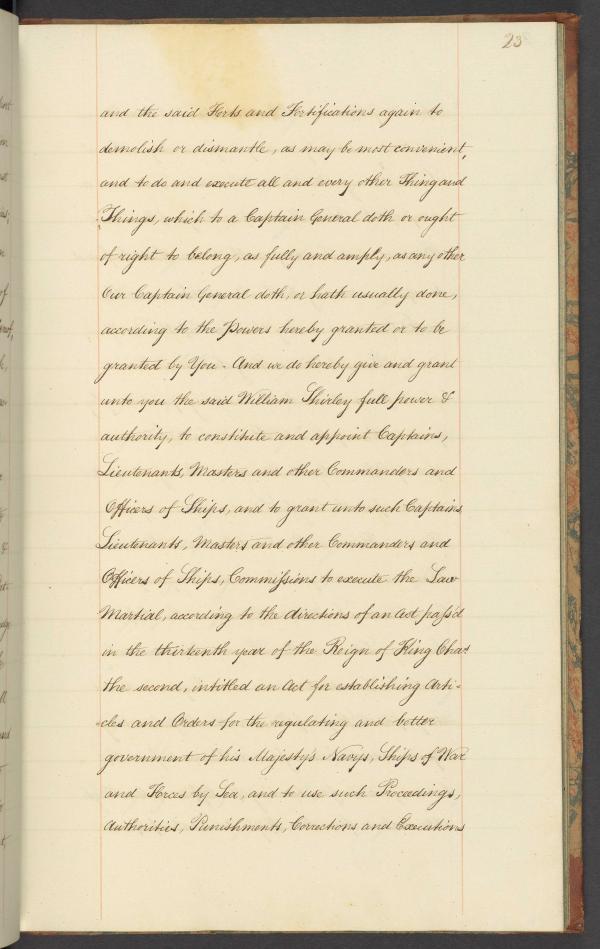 23
and the said Forts and Fortifications again to
demolish or dismantle, as may be most convenient,
and to do and execute all and every other Thing and
Things, which to a Captain General doth or ought
of right to belong, as fully and amply, as any other
Our Captain General doth, or hath usually done,
according to the Powers hereby granted or to be
granted by You - And we do hereby give and grant
unto you the said William Shirley full power &
authority, to constitute and appoint Captains,
Lieutenants, Masters and other Commanders and
Officers of Ships, and to grant unto such Captains
Lieutenants, Masters and other Commanders and
Officers of Ships, Commissions to execute the Law
Martial, according to the directions of an Act pass'd
in the thirteenth year of the Reign of King Chas
the second, intitled an Act for establishing Arti-
-cles and Orders for the regulating and better
government of his Majesty's Navys, Ships of War
and Forces by Sea, and to use such Proceedings,
Authorities, Punishments, Corrections and Executions